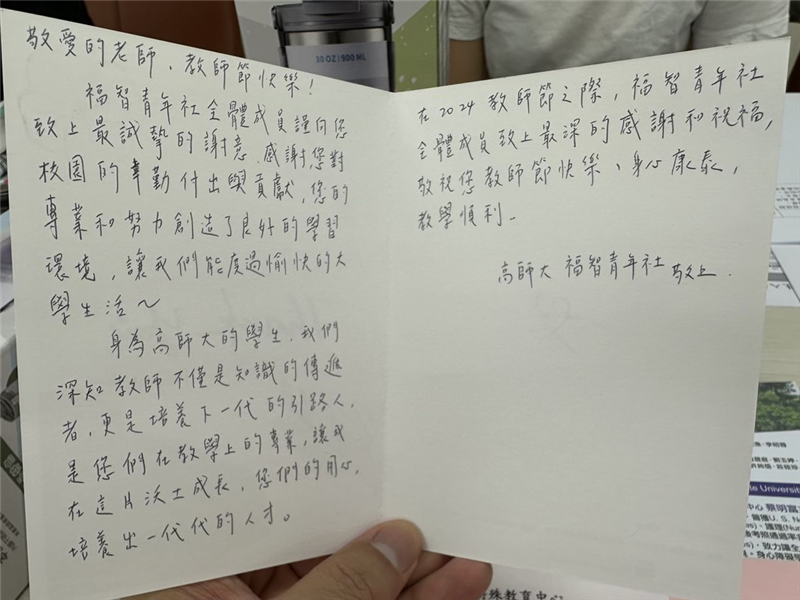 敬愛的老師，教師節快樂！
福智青年社全體成員謹向您
致上最誠摯的謝意，感謝您對
校園的辛勤付出與貢獻，您的
專業和努力創造了良好的學習
環境，讓我們能度過愉快的大
學生活～
身為高師大的學生，我們
深知教師不僅是知識的傳遞
者，更是培養下一代的引路人，
是您們在教學上的專業，讓我
在這片沃土成長，您們的用心，
培養出一代代的人才。
在2024教師節之際，福智青年社
全體成員致上最深的感謝和祝福，
敬祝您教師節快樂、身心康泰，
教學順利。
高師大 福智青年社 敬上.
30 OZ | 900 ML
殊教育中心